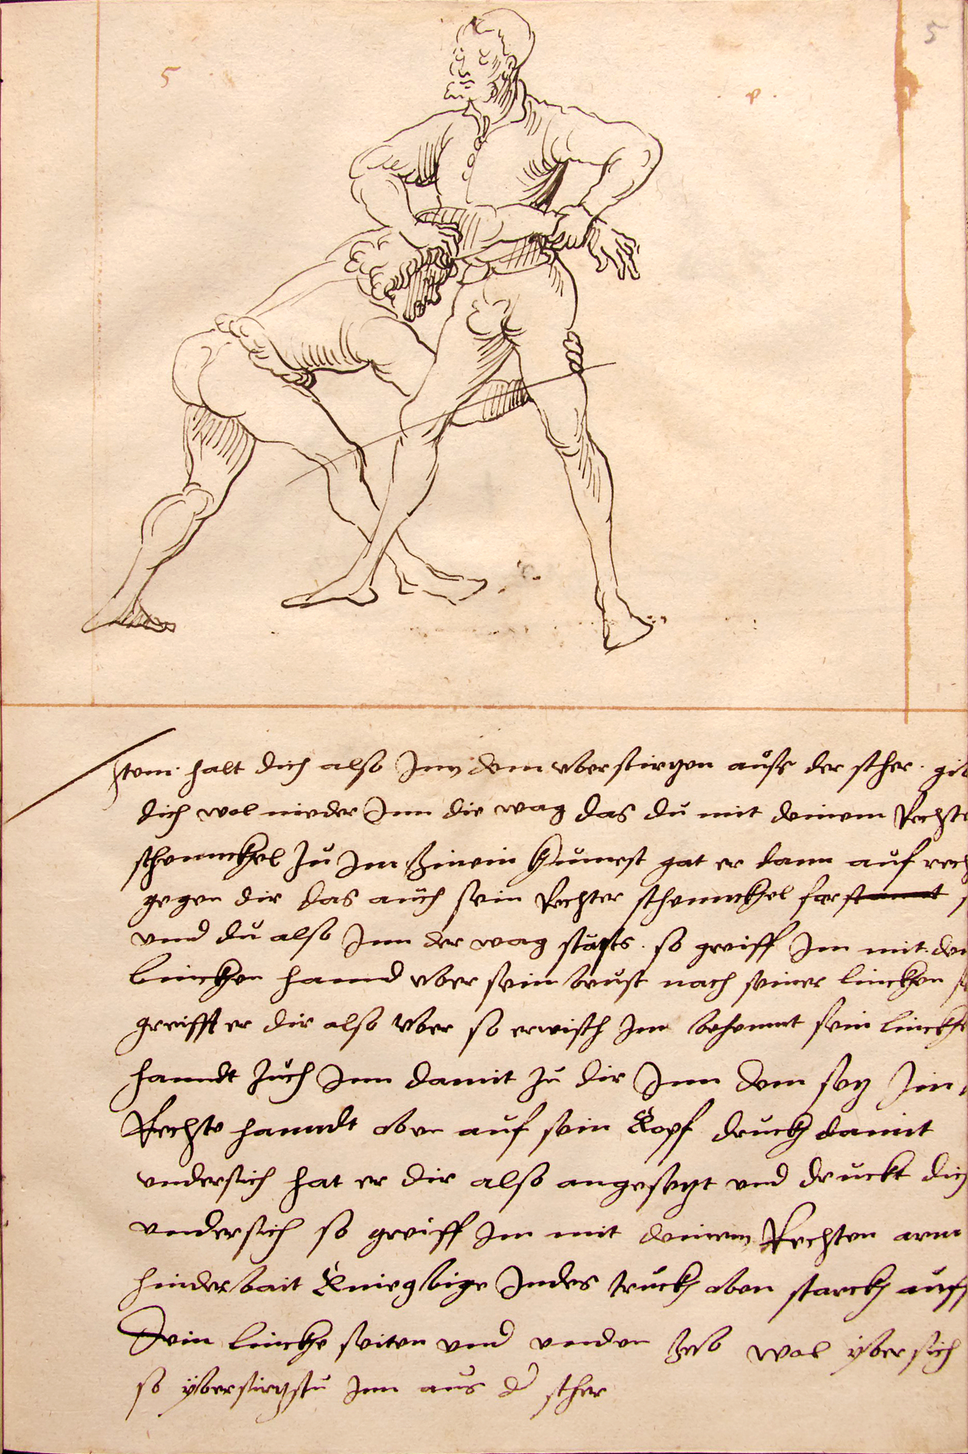 5
5
Item halt dich also Inn dem vberstirtzen auss der scher
dich wol nieder Inn die wag das du mit deinem Rechte
schennckel zu Im hinein kumest gat er dann auf rech
gegen dir das auch sein Rechter schennckel
vnd du also Inn der wag stasts so greiff Im mit
linckhen hannd vber sein brust nach seiner linckhen
greifft er dir also vber so erwisch Im behennt sein linckhe
hanndt zuch Inn damit zu dir Inn dem setz Im
Rechte hanndt oben auf sein Kopf druckh damit
vndersich hat er dir also angesetzt vnd druckt dich
vndersich so greiff Im mit deinem Rechten arm
hinder bait kniegbige Indes truckh oben starckh auff
Sein lincke seiten vnd vnden heb wol ybersich
so yberstirtzstu Inn aus d scher